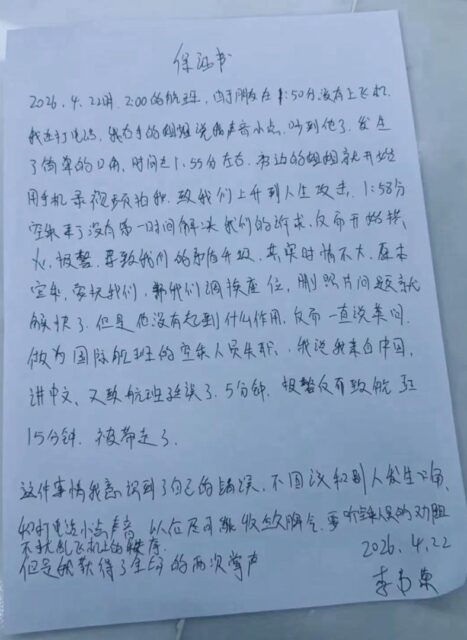 保证书
2026.4.22日 2:00的航班,由于朋友在1:50分没有上飞机,
我在打电话,我右手的姐姐说我声音小点,吵到他了,发生
了简单的口角,时间在1.55分左右,旁边的姐姐就开始
用手机录视频拍我,致我们上升到人生攻击,1:58分
空乘来了没有第一时间解决我们的诉求,反而开始拱
火,报警,导致我们的矛盾升级,其实时情不大,原本
空乘,安抚我们,帮我们调换座位,删照片问题就
解决了.但是他没有起到什么作用,反而一直说美国,
做为国际航班的空乘人员失职,我说我来自中国,
讲中文,又致航班延误了.5分钟.报警反而致航班
15分钟.被带走了.
这件事情我意识到了自己的错误,不因该和别人发生口角,
如打电话小点声音,以后尽可能收敛脾气,要听空乘人员的劝阻
不扰乱飞机上的秩序.
但是我获得了全场的两次掌声
2026.4.22
李